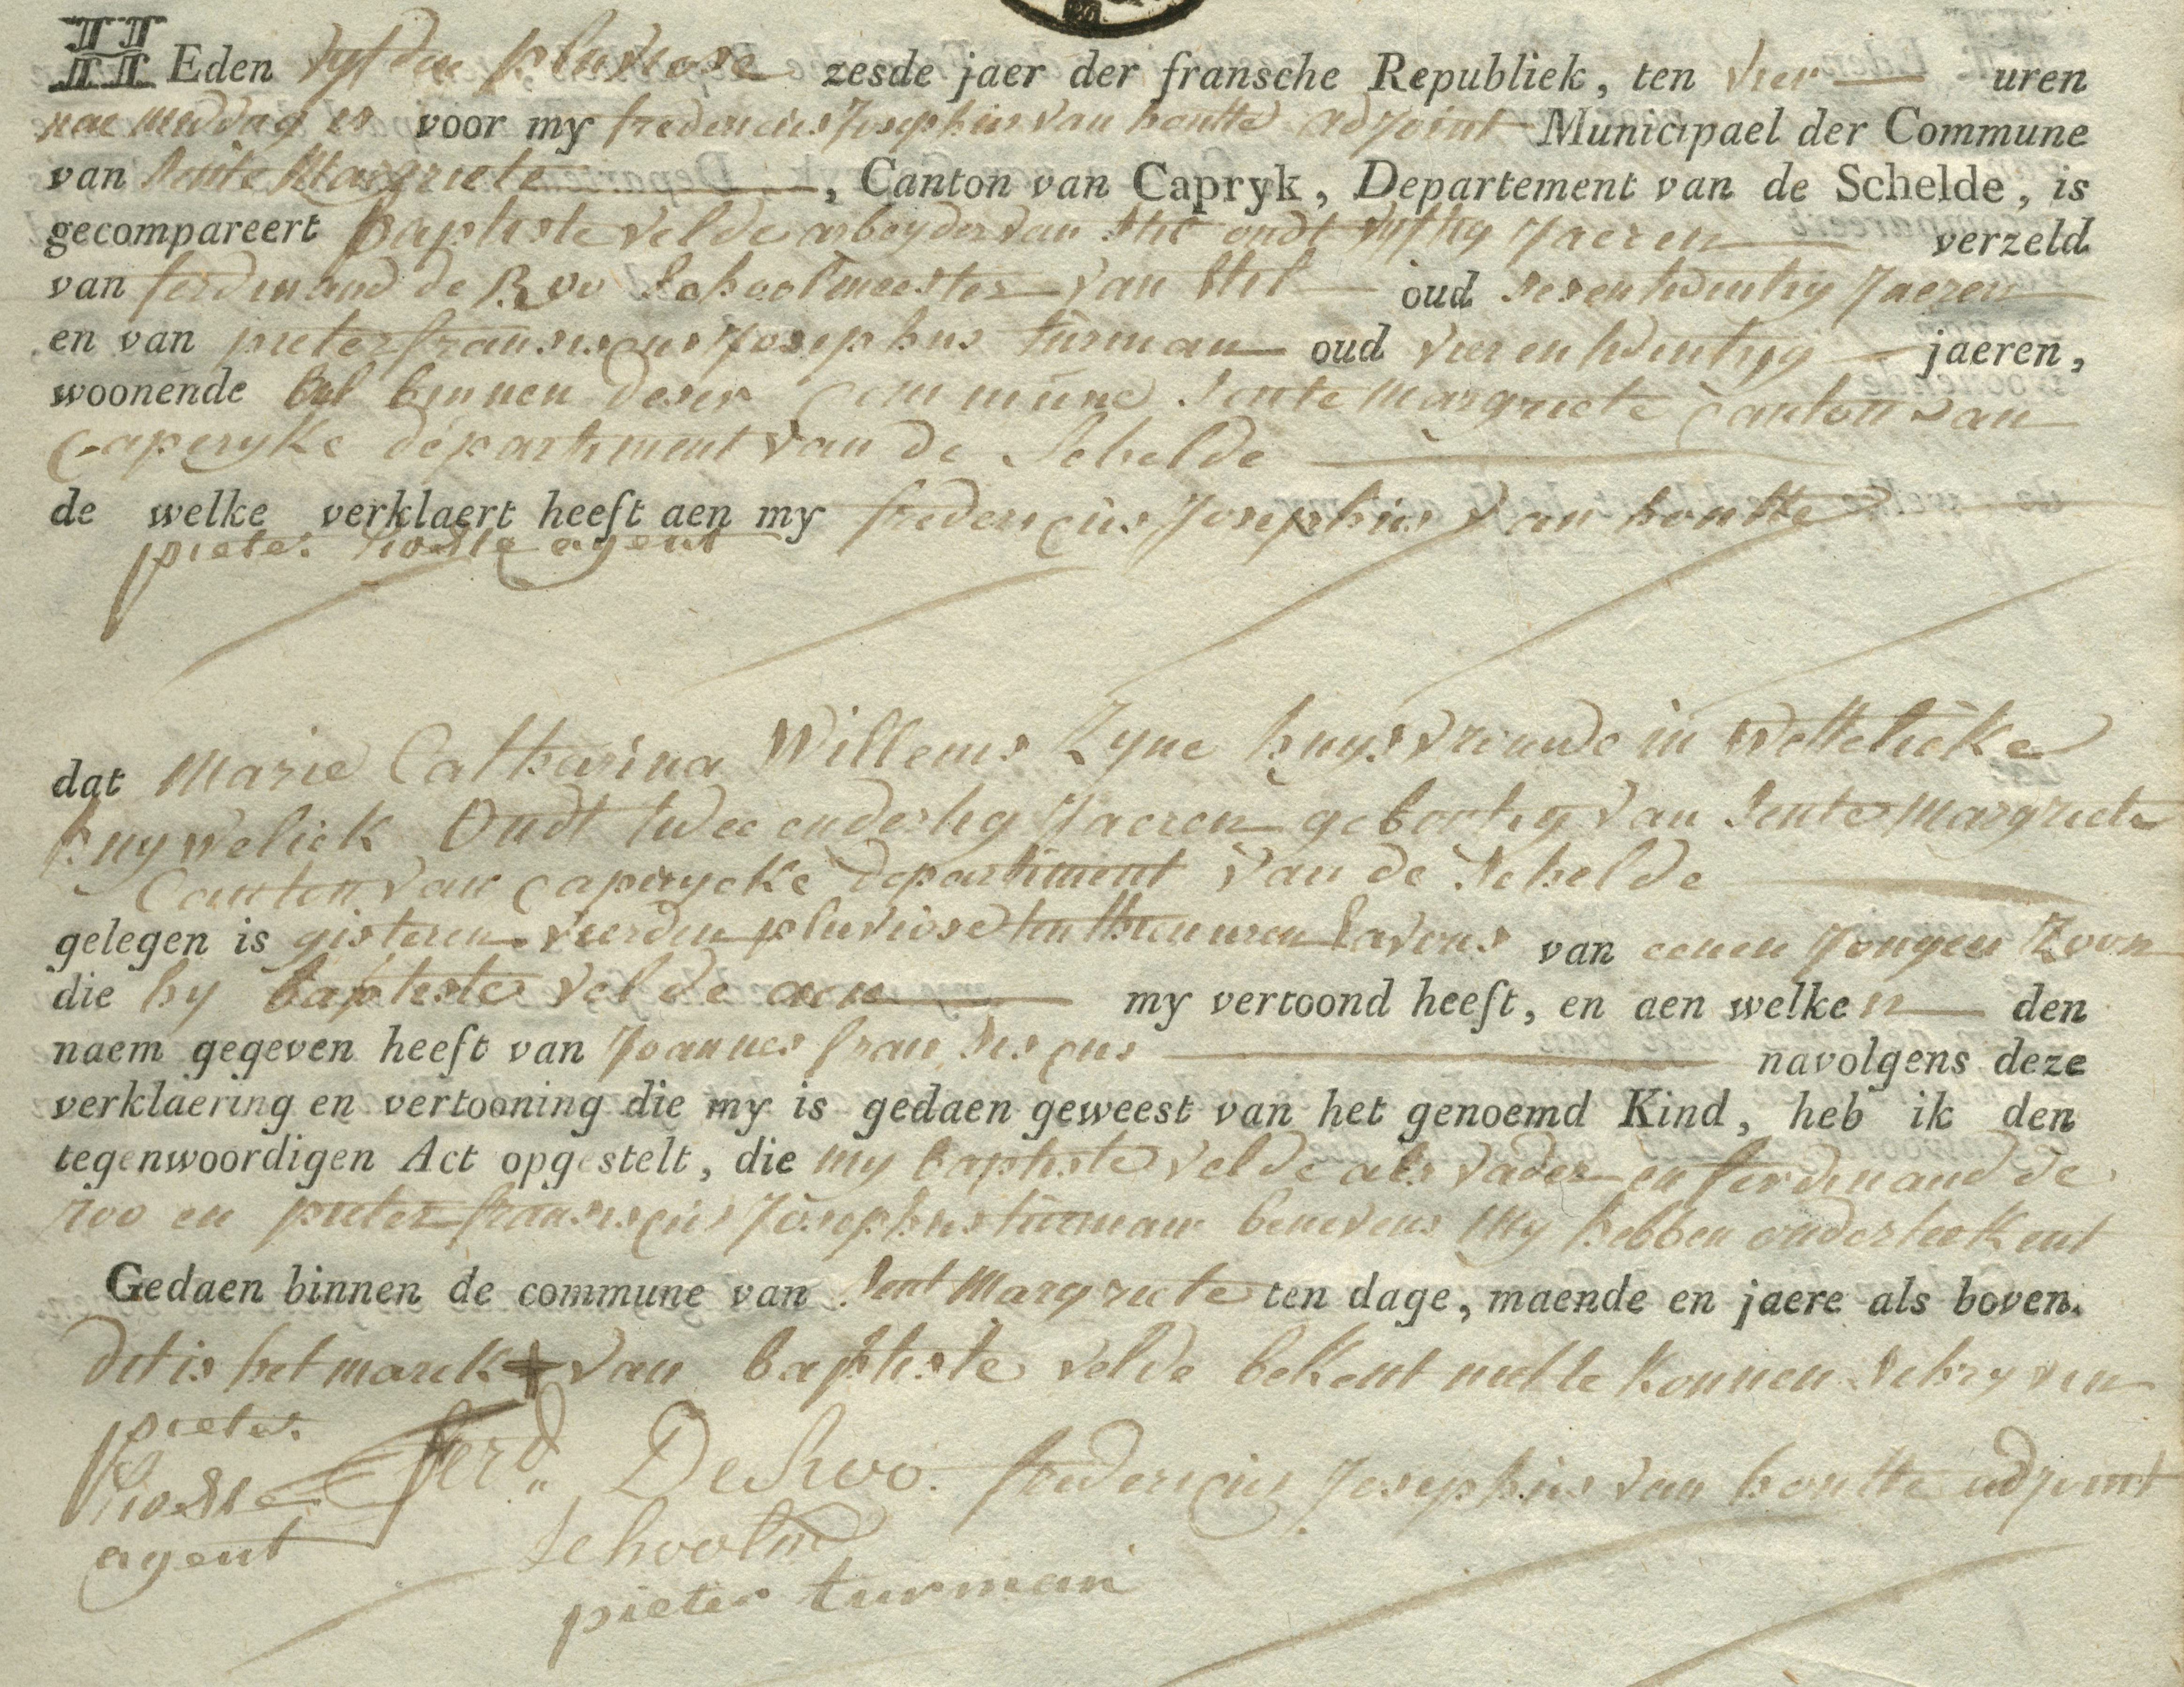 HEden vyfden pluviose zesde jaer der fransche Republiek, ten vier uren
nae middag is voor my fredericus Josephus van houtte adjoint Municipael der Commune
van Sente Margriete, Canton van Capryk, Departement van de Schelde, is
gecompareert baptiste velde arbeyder van stiel oudt vyftig Jaeren verzeld
van ferdinand de Roo Schoolmeester van stiel oud sesentwintig Jaeren
en van pieter fransiscus Josephus turman oud vierentwintig jaeren,
woonende al binnen deser commune Sente margriete canton van
Caperyke departement van de Schelde
de welke verklaert heeft aen my fredericus Josephus van houtte
pieter agent
dat Marie Catharina Willems Zyne huysvrouwe in wetteliëke
huyweliek Oudt twee endertig Jaeren gebortig van Sente Margriete
Canton van caperycke departiment van de Schelde
gelegen is gisteren vierden pluviose ten thien uren savons van eenen Jongen Zoon
die hy baptiste velde aen my vertoond heeft, en aen welken den
naem gegeven heeft van Joannes fransiscus navolgens deze
verklaering en vertooning die my is gedaen geweest van het genoemd Kind, heb ik den
tegenwoordigen Act opgestelt, die my baptiste velde als vader en ferdinand de
roo en pieter fransiscus Josephus turman benevens my hebben onderteekent
Gedaen binnen de commune van Sent Margriete ten dage, maende en jaere als boven.
dit is het marck + van baptiste velde bekent niet te konnen schryven
pieter
agent
ferd. De Roo. fredericus Josephus van houtte adjoint
schoolm
pieter turman